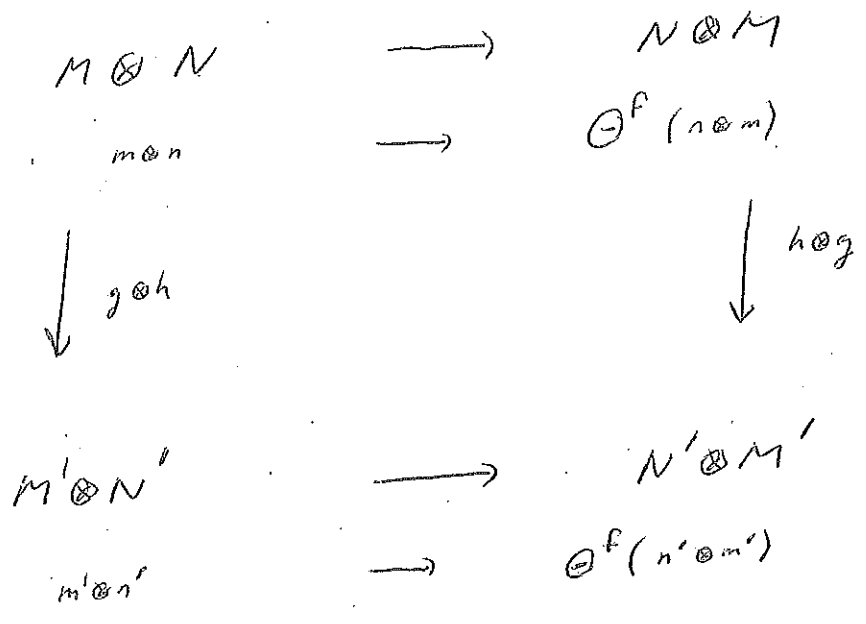 M ⊗ N ⟶ N ⊗ M
m⊗n ⟶ Θ^f (n⊗m)
g⊗h h⊗g
M'⊗N' ⟶ N'⊗M'
m'⊗n' ⟶ Θ^f (n'⊗m')